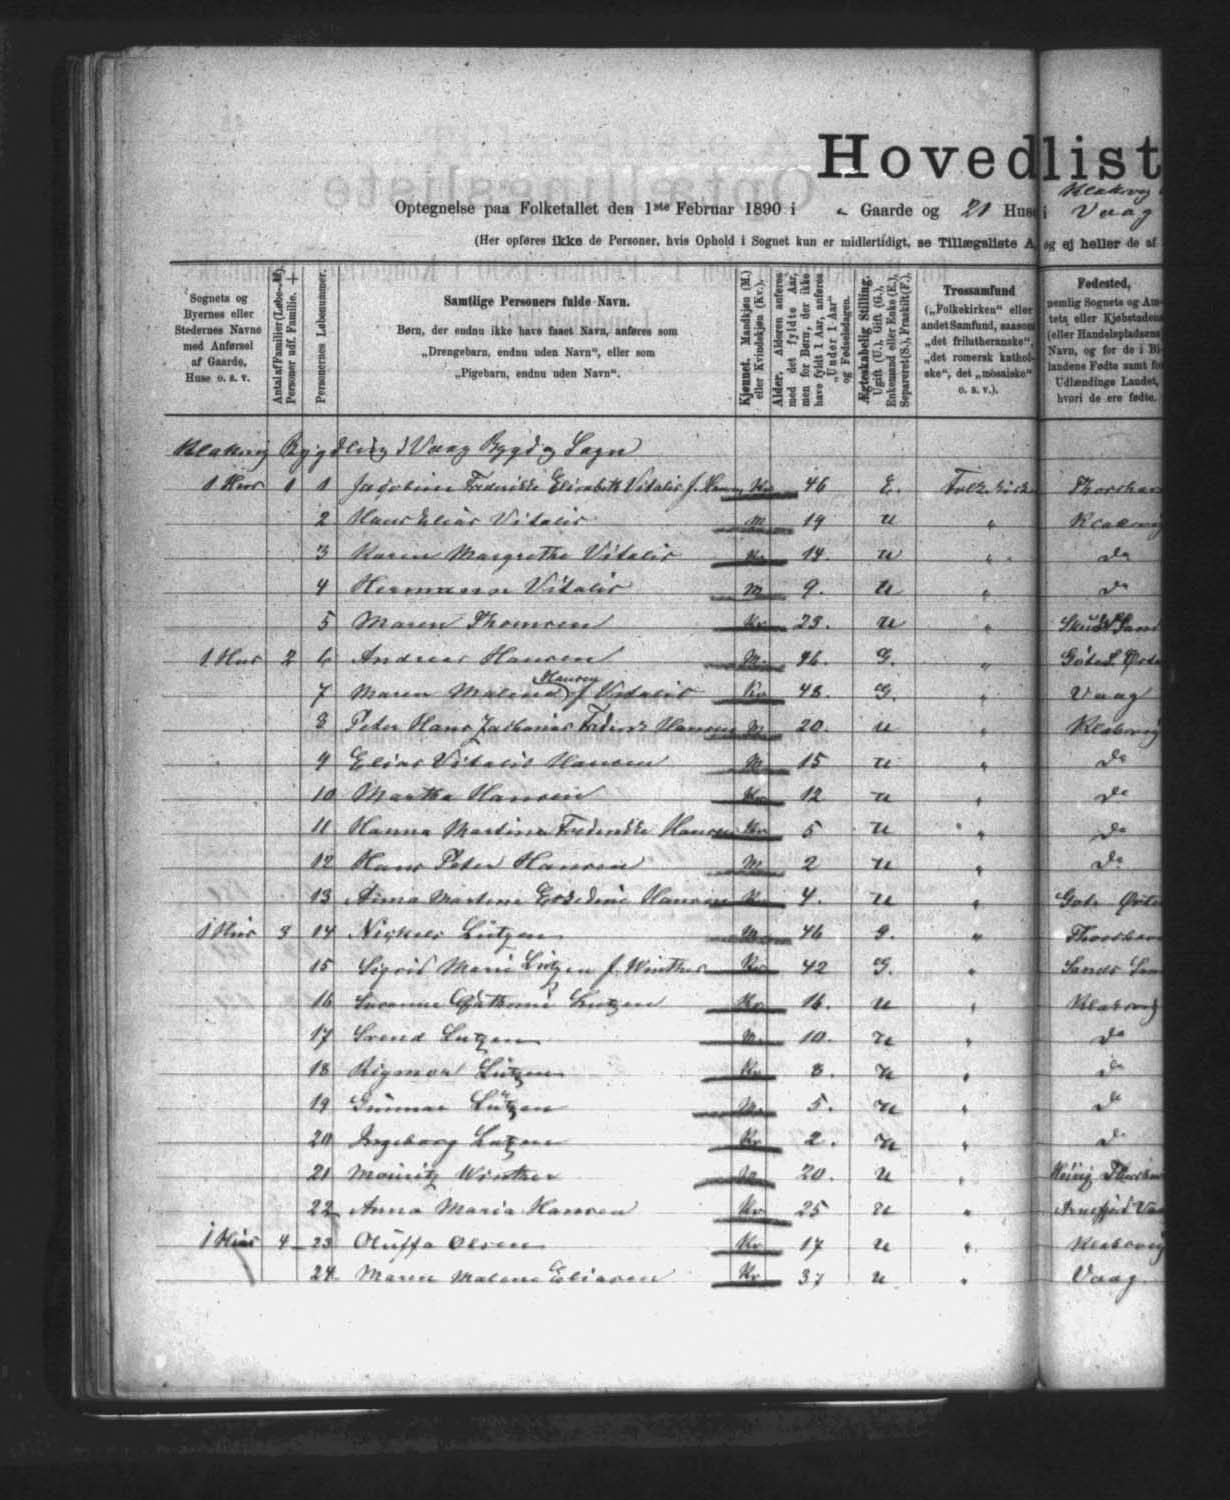 Hovedlist
Optegnelse paa Folketallet den 1ste Februar 1890 i „ Gaarde og 21 Huse i Vaag
(Her opføres ikke de Personer, hvis Ophold i Sognet kun er midlertidigt, se Tillægsliste A, og ej heller de af
Sognets og Byernes eller Stedernes Navne med Anførsel af Gaarde, Huse o. s. v.
Antal af Familier (Løbe-Nr.) Personer udf. Familie.
Personernes Løbenummer.
Samtlige Personers fulde Navn.
Børn, der endnu ikke have faaet Navn, anføres som
„Drengebarn, endnu uden Navn“, eller som
„Pigebarn, endnu uden Navn“.
Kjønnet. Mandkjøn (M.) eller Kvindekjøn (Kv.).
Alder. Alderen anføres med det fyldte Aar, men for Børn, der ikke have fyldt 1 Aar, anføres „Under 1 Aar“ og Fødselsdagen.
Ægteskabelig Stilling. Ugift (U.), Gift (G.), Enkemand eller Enke (E.), Separeret (S.), Fraskilt (F.).
Trossamfund („Folkekirken“ eller andet Samfund, saasom „det frilutheranske“, „det romersk kathol- ske“, det „mosaiske“ o. s. v.).
Fødested, nemlig Sognets og Am- tets eller Kjøbstadens (eller Handelspladsens Navn, og for de i Bi- landene Fødte samt for Udlændinge Landet, hvori de ere fødte.
i Vaag Bygd og Sogn
1 Hus 1 1 Jacobine Frederikke Elisabeth Vitalis f. Kv 46 E. Folkekirke Thorshav
2 Hans Elias Vitalis M 19 U „
3 Karen Margrethe Vitalis Kv 14 U „ do
4 Hermann Vitalis M 9. U „ do
5 Maren Thomsen Kv 23. U „
1 Hus 2 6 Andreas Hansen M 46. G. „
7 Maren Malena Hansen f Vitalis Kv 48. G. „ Vaag
8 Peter Hans Hansen M 20. U „
9 Elias Vitalis Hansen M 15 U „ do
10 Martha Hansen Kv 12 U „ do
11 Hanna Martine Frederikke Hansen Kv 5 U „ do
12 Hans Peter Hansen M 2 U „ do
13 Anna Martine Hansen Kv 4. U „
1 Hus 3 14 Lützen M 46 g. „ Thorshav
15 Sigrid Marie Lützen f. Winther Kv 42 G. „ Sands
16 Susanne Lützen Kv 16. U „
17 Svend Lützen M 10. U „ do
18 Rigmor Lützen Kv 8. U „ do
19 Gunnar Lützen M 5. U „ do
20 Ingeborg Lützen Kv 2. U „ do
21 Mouritz Winther M 20. U „
22 Anna Maria Hansen Kv 25 U „
1 Hus 4 23 Oluffa Olsen Kv 17 U „
24 Maren Malene Eliasen Kv 37 U „ Vaag